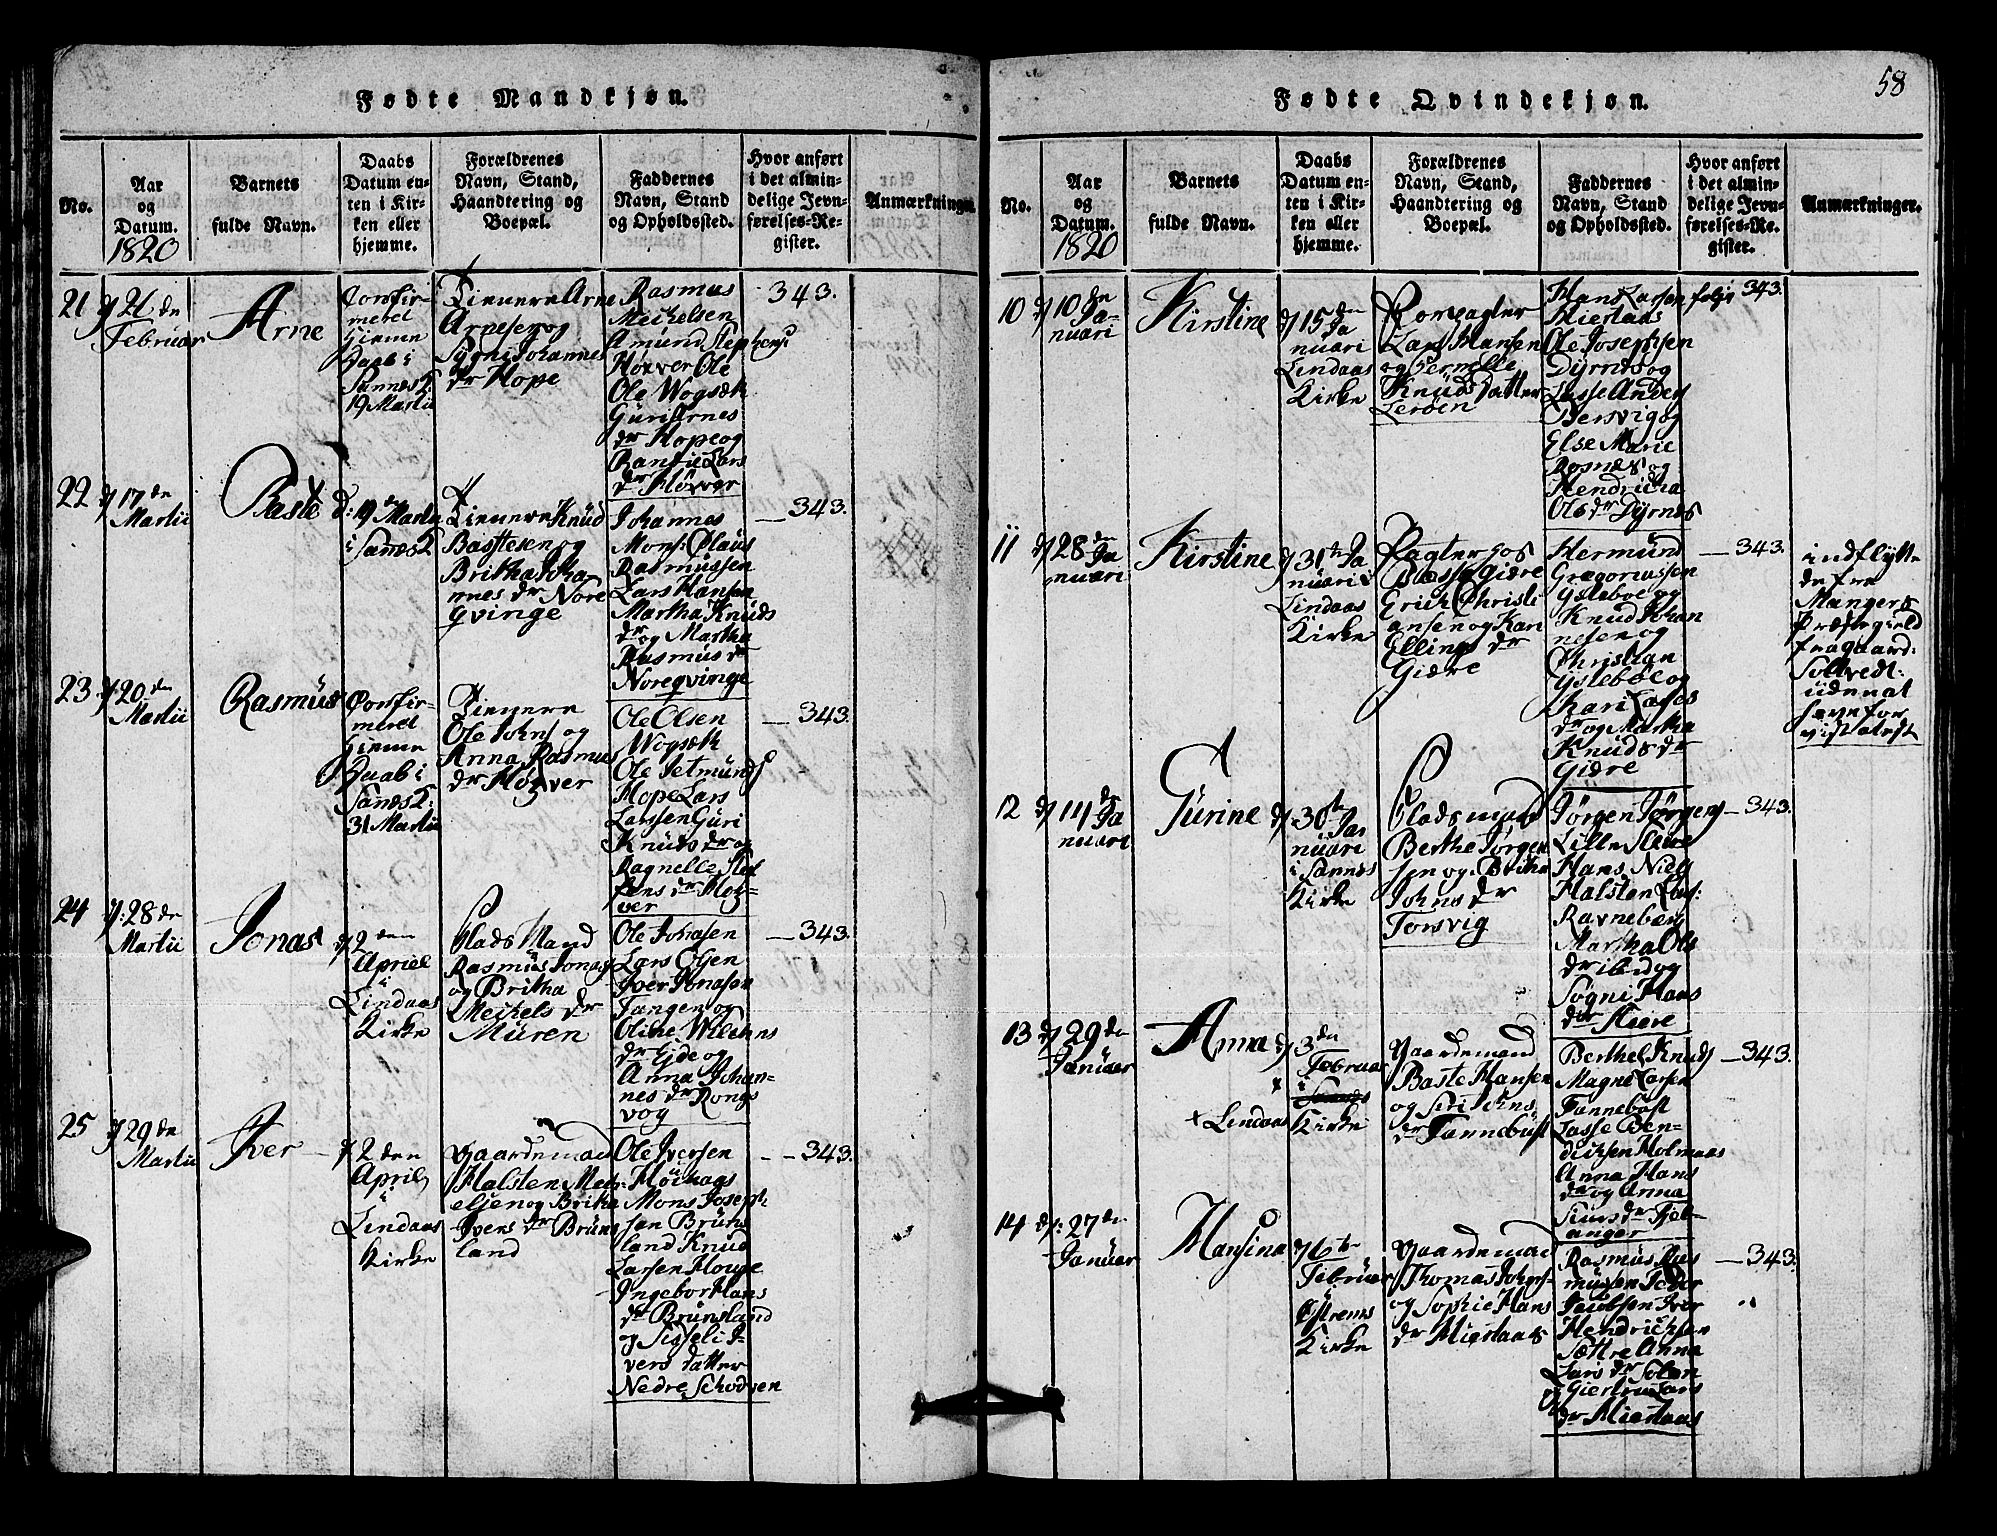 58
Fødte Mandkjøn.
No.
Aar
og
Datum.
1820
Barnets
fulde Navn.
Daabs
Datum en-
ten i Kir-
ken eller
hjemme.
Forældrenes
Navn, Stand,
Haandtering og
Boepæl.
Faddernes
Navn, Stand
og Opholdssted.
Hvor anført
i det almin-
delige Jevn-
førelses-Re-
gister.
Anmærkninger
21
d 21 de
Februar
Arne
Confir-
meret
Hiemme
Daab i
Sannes K
19 Martii
Lieuere Arne
Arnesen og
Sygni Johannes
dr Hope
Rasmus
Meichelsen
Amund Stephens
Høxver Ole
Ole Wogsæk
Guri Arnes
dr Hope og
Lars
dr Høxver
343.
22
d 17 de
Martii
Baste
d: 19 de Martii
i Sanes K
Knud
Bastesen og
Britha Joha
nnes dr Nore
qvinge
Johannes
Mons: Olaus
Rasmussen
Lars Hansen
Martha Knuds
dr og Martha
Rasmus dr
Noreqvinge
343.
23
d. 20 de
Martii
Rasmus
Confir-
meret
Hiemme
Daab i
Sanes K:
31 Martii
Ole Johns og
Anna Rasmus
dr Høxver
Ole Olsen
Wogsæk
Ole Jetmunds
Hope Lars
Larssen Guri
Knuds dr og
Ragnelle Stef
fens dr Høx-
ver
343.
24
d: 28 de
Martii
Jonas
d 2 den
Apriel
i
Lindaas
Kirke
Plads Mand
Rasmus Jonas
og Britha
Meichels dr
Muren
Ole Johasen
Lars Olsen
Iver Jonasen
Tangen og
Oline Willums
dr Eide og
Anna Johan-
nes dr Rongs
vog
343.
25
d 29 de
Martii
Iver
d 2 den
April
i
Lindaas
Kirke
Gaardemand
Halsten Mon-
elsen og Brithe
Ivers dr Bruns
land
Ole Iversen
Mons Joseph-
sen Bruns
land Knud
Larsen Houge
Ingebor Hans
dr Brunsland
og Sisseli I-
vers datter
Nedre Schodven
343.
Fødte Qvindekjøn.
No.
Aar
og
Datum.
1820
Barnets
fulde Navn.
Daabs
Datum en-
ten i Kir-
ken eller
hjemme.
Forældrenes
Navn, Stand,
Haandtering og
Boepæl.
Faddernes
Navn, Stand
og Opholdssted.
Hvor anført
i det almin-
delige Jevn-
førelses-Re-
gister.
Anmærkninger.
10
d 10 de
Ja-
nuari
Kirstine
d 15 den
Ja
nuari
Lindaas
Kirke
Lars Hansen
og Pernelle
Knuds datter
Lerøen
Hans Larsen
Miestaas
Ole Josephsen
Dyrnes og
Lasse Anders
Bersvig og
Else Marie
Rosnes og
Hendricha
Ols dr Dyrnes
folge 343.
11
d 28 de
Ja
nuari
Kirstine
d 31 te Ja
nuari i
Lindaas
Kirke
Pagter hos
Basse Giære
Erich Christi
ansen og Kari
Ellings dr
Giære
Hermund
Gregoriussen
Ysleboe og
Knud Johan
nesen og
Christian
Ysleboe og
Kari Lases
dr og Martha
Knuds dr
Giære
343.
indflytte
de fra
Mangers
Præstegield
fra gaard:
Soltvedt:
uden at
have for
vist atest
12
d 14 de
Ja
nuari
Gurine
d. 30 te Ja
nuari
i Sannes
Kirke
Pladsmand
Berthe Jørgen
sen og Britha
Johns dr
Torsvig
Jørgen Jørgens
Lille Steire
Hans Niels
Halsten Las:
Ravneberg
Martha Ols
dr ibid og
Sogni Hans
dr Steire
343.
13
d 29 de
Januar
Anna
+ Lindaas
d 3 den
Februar
i
Sannes
Kirke
Gaardemand
Baste Hansen
og Siri Johns
dr Fannebust
Berthel Knuds
Magne Larsen
Fannebust
Lasse Ben-
dichsen Holmaas
Anna Hans
dr og Anna
Sims dr Fieb-
anger
343.
14
d: 27 de
Januar
Hansina
d 6 te
Februar
Østrems
Kirke
Gaardemand
Thomas Johns-
og Sophie Hans
dr Miestaas
Rasmus Ras
musen Peder
Jacobsen Iver
Hendrichsen
Sættre Anna
Lars dr Solem
og Giertru Lars
dr Miestaas
343.